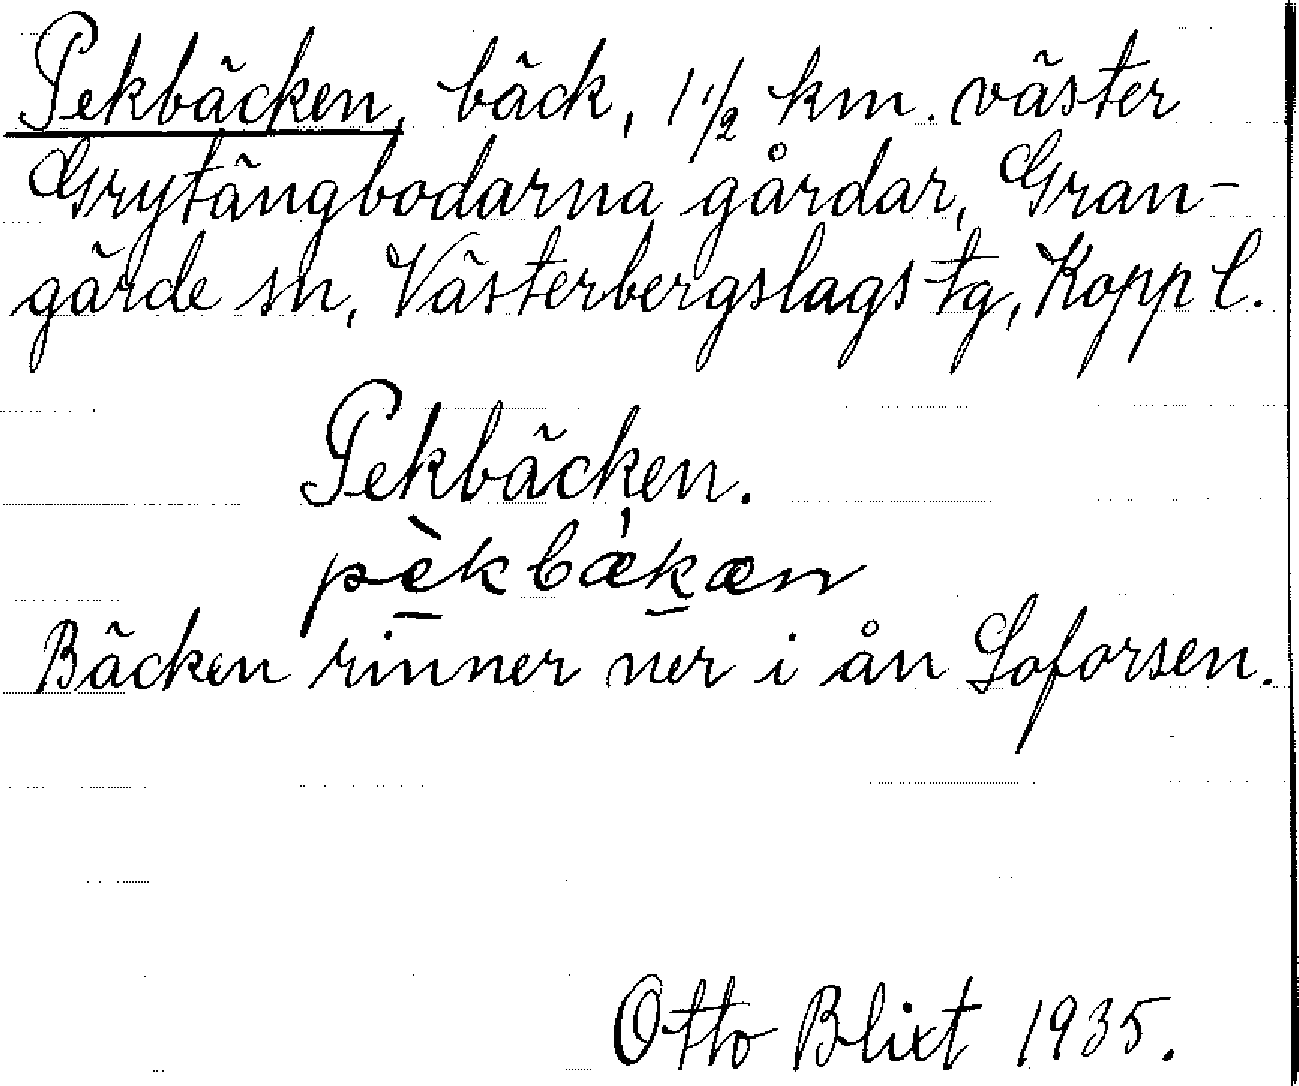 Pekbäcken, bäck, 1 1/2 km. väster
Grytängbodarna gårdar, Gran-
gärde sn, Västerbergslags tg, Kopp l.
Pekbäcken.
pèkbækæn
Bäcken rinner ner i ån Loforsen.
Otto Blixt 1935.